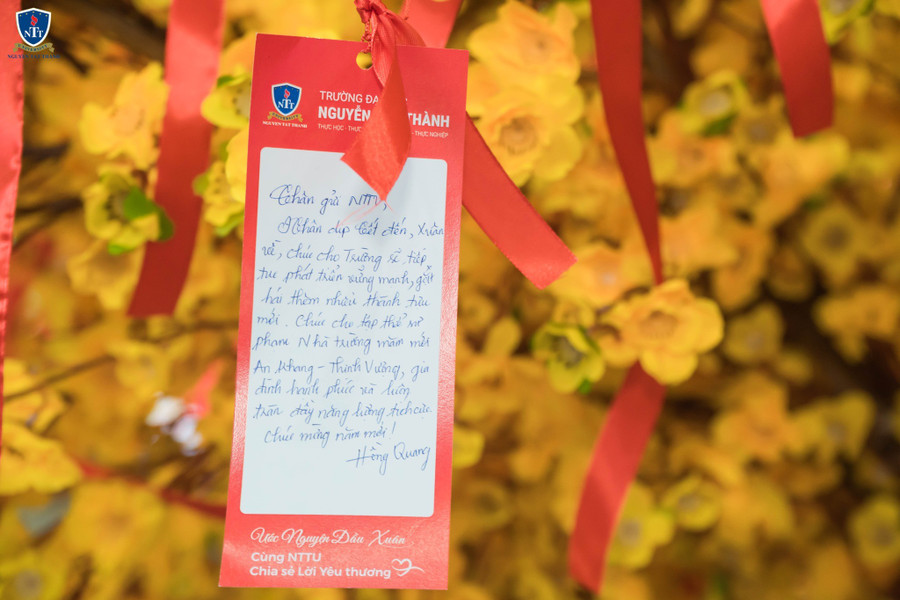 NTT
NGUYEN TAT THANH
NTT
NGUYEN TAT THANH
TRƯỜNG ĐẠ
NGUYỄN THÀNH
THỰC HỌC - THỰC - THỰC NGHIỆP
NTT
Thân gửi NTTU,
Nhân dịp Tết đến, Xuân
về, chúc cho Trường sẽ tiếp
tục phát triển vững mạnh, gặt
hái thêm nhiều thành tựu
mới. Chúc cho tập thể sư
phạm Nhà trường năm mới
An Khang - Thịnh Vượng, gia
đình hạnh phúc và luôn
tràn đầy năng lượng tích cực.
Chúc mừng năm mới!
Hồng Quang
Ước Nguyện Đầu Xuân
Cùng NTTU
Chia sẻ Lời Yêu thương